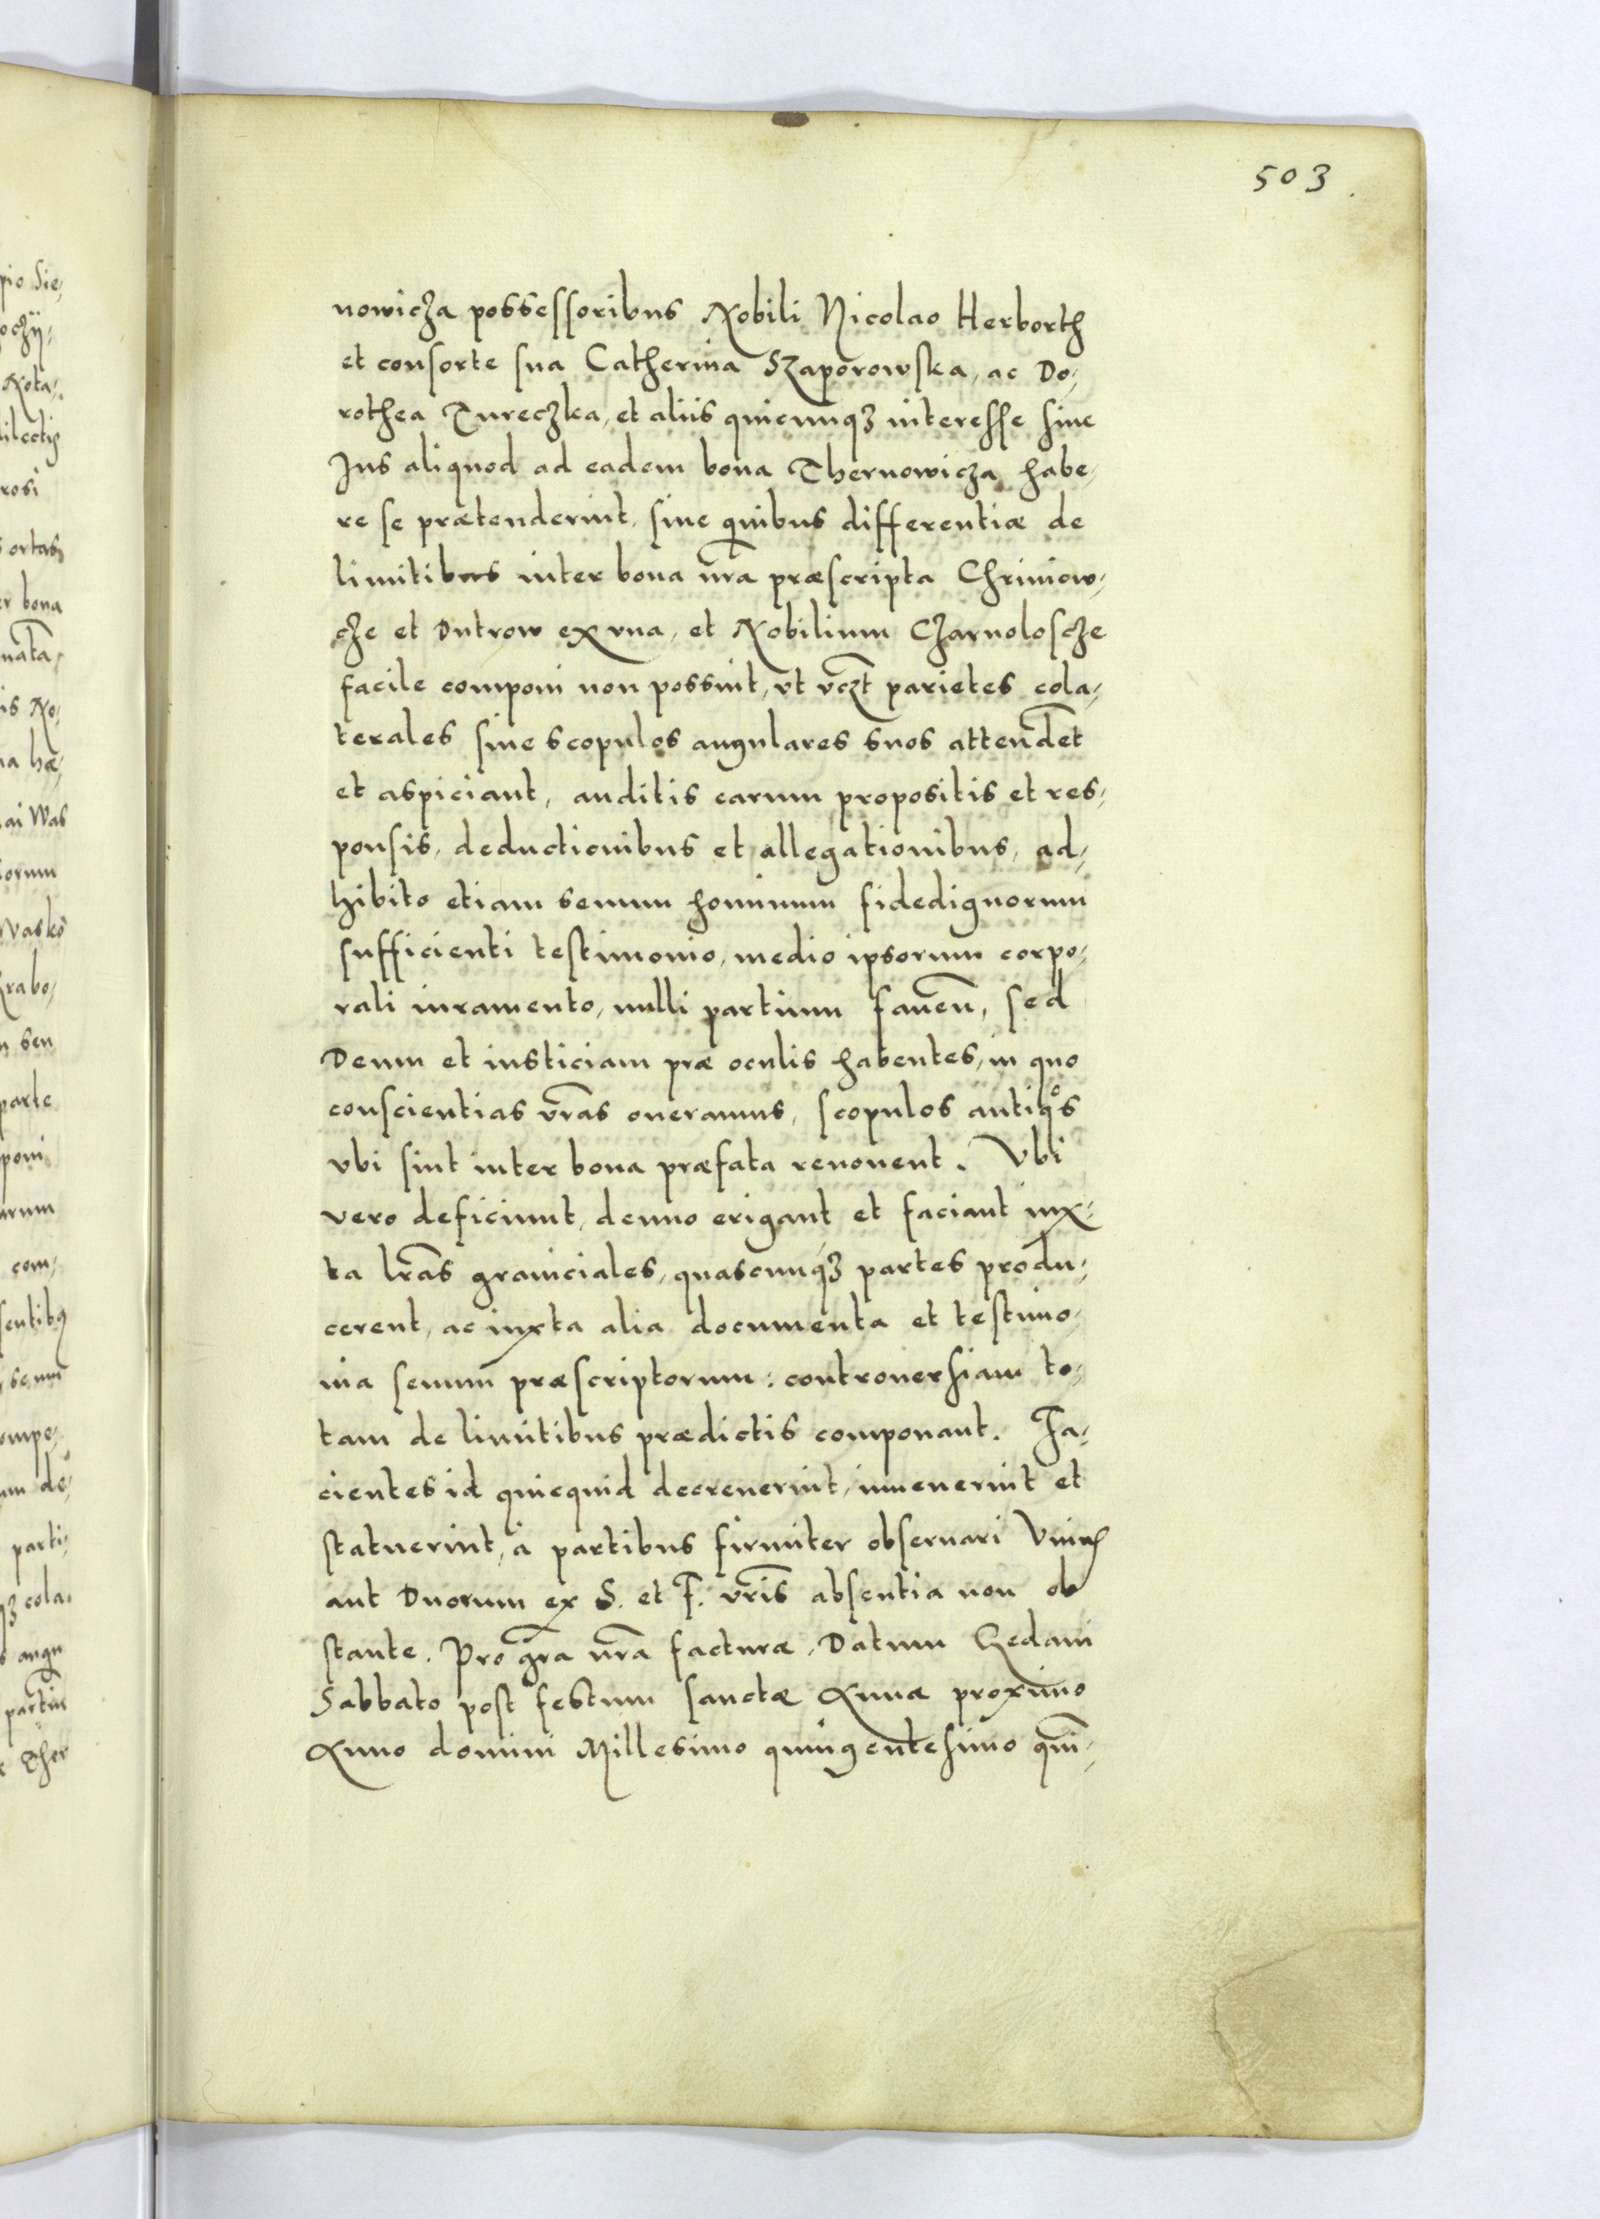 503
nowicza possessoribus Nobili Nicolao Herborth
et consorte sua Catherina Szaporowska, ac Do,
rothea Tureczka, et aliis quicunqʒ interesse siue
Ius aliquod ad eadem bona Thernowicza habe,
re se prætenderint, sine quibus differentiæ de
limitibus inter bona nr̃a præscripta Chriniow,
cze et Dutrow ex vna, et Nobilium Czarnolosche
facile componi non possint, vt vczt̃ parietes cola,
terales siue scopulos angulares suos attendet̃
et aspiciant, auditis earum propositis et res,
ponsis, deductionibus et allegationibus, ad,
hibito etiam senum hominum fidedignorum
sufficienti testimonio, medio ipsorum corpo,
rali iuramento, nulli partium faueñ, sed
Deum et iusticiam præ oculis habentes, in quo
conscientias vr̃as oneramus, scopulos antiqͦs
vbi sint inter bona præfata renouent. Vbi
vero deficiunt, denuo erigant et faciant iux,
ta lr̃as graniciales, quascunqʒ partes produ,
cerent, ac iuxta alia documenta et testimo,
nia senum præscriptorum: controuersiam to,
tam de limitibus prædictis componant. Fa,
cientes id quicquid decreuerint, inuenerint et
statuerint, à partibus firmiter obseruari Vniꝰ
aut Duorum ex S. et F. vr̃is absentia non ob
stante. Pro gr̃a nr̃a facturæ. Datum Gedani
Sabbato post festum sanctæ Annæ proximo
Anno domini Millesimo quingentesimo qui̅,